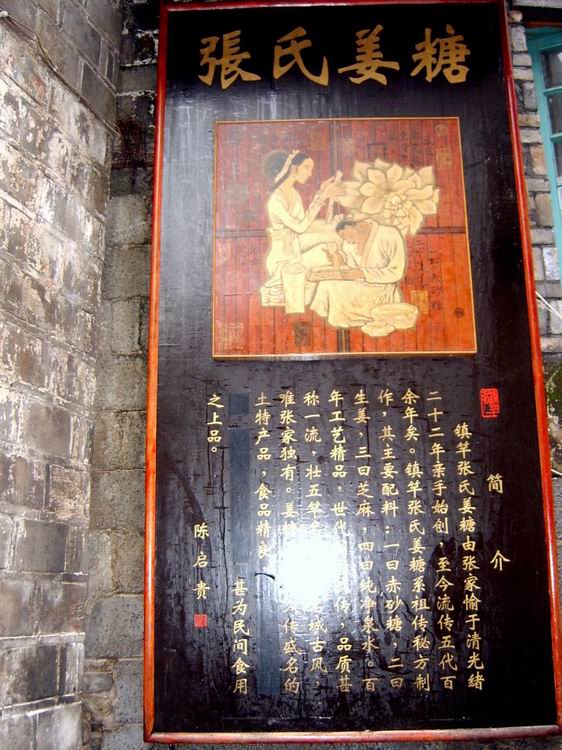 張氏姜糖
简介
镇竿张氏姜糖由张家愉于清光绪
二十二年亲手始创，至今流传五代百
余年矣。镇竿张氏姜糖系祖传秘方制
作，其主要配料：一曰赤砂糖，二曰
生姜，三曰芝麻，四曰纯净泉水。百
年工艺精品，世代 传，品质甚
称一流，壮五竿 城古风，
唯张家独有。姜糖 传盛名的
土特产品，食品精良
甚为民间食用
之上品。
陈启贵